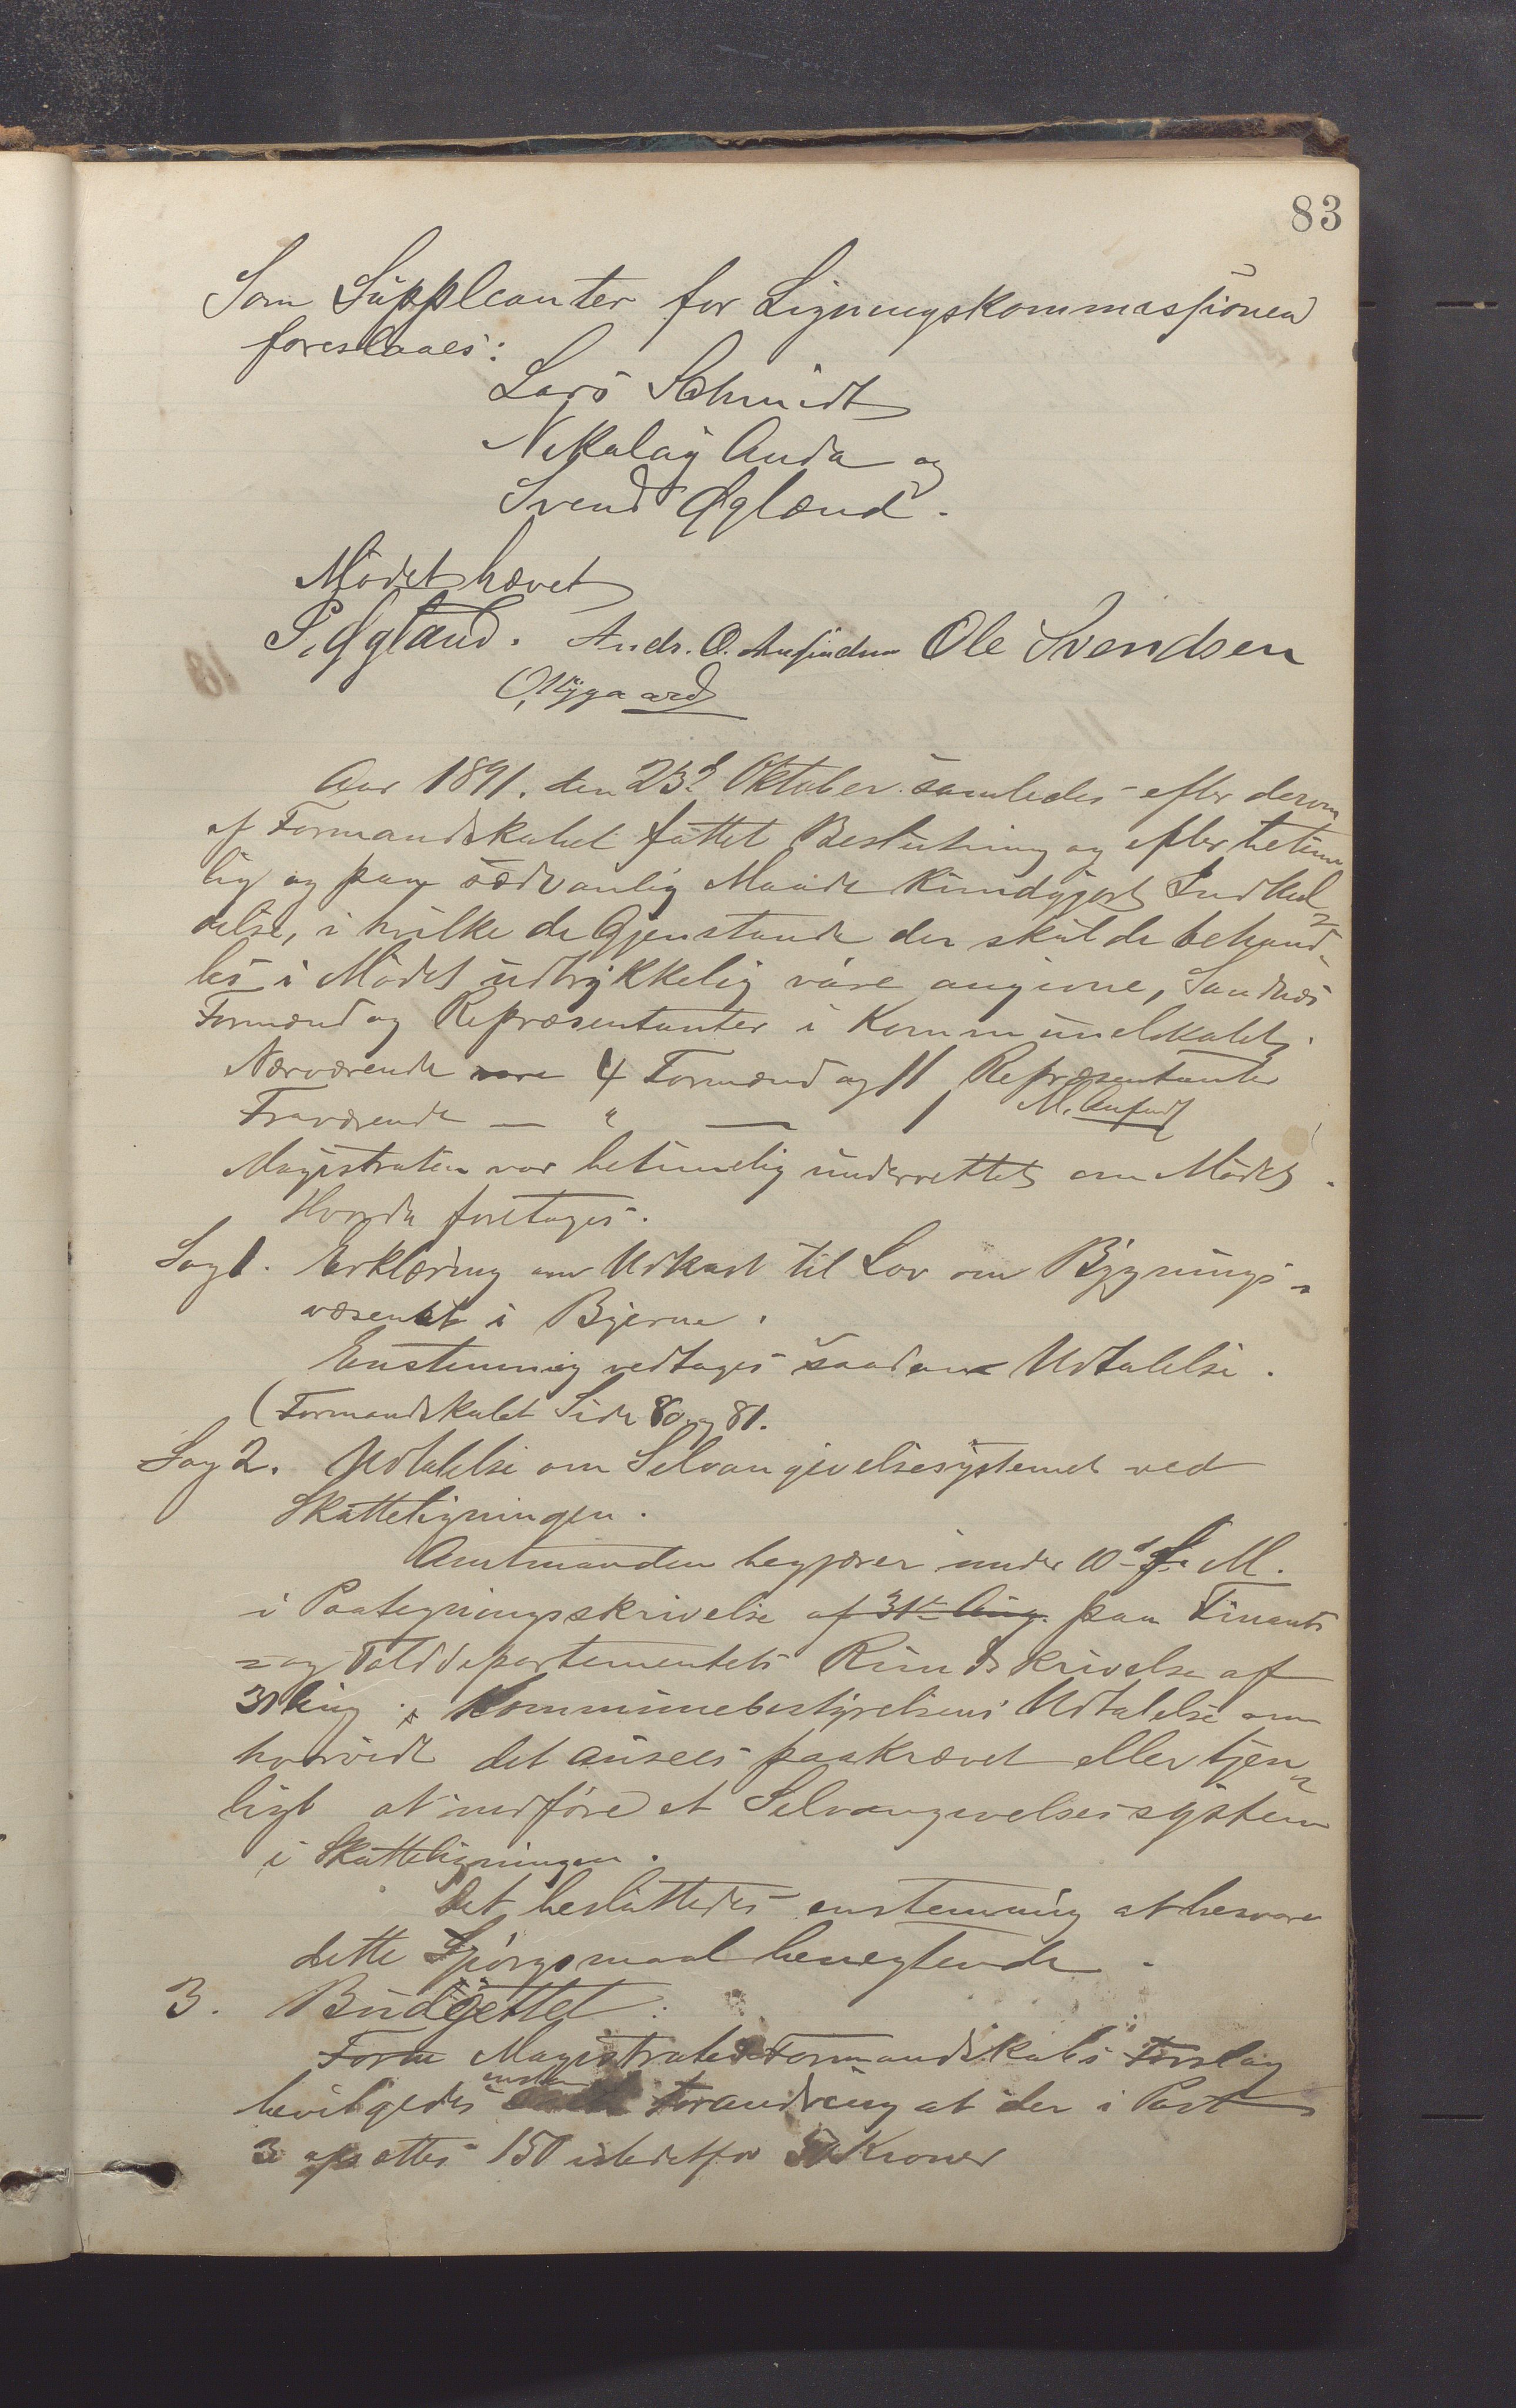 83
Som Supplcanter for Ligningskommissionen
foreslaaes:
Lars Schmidt
Nikolay Auda og
Svend Øglænd.
Mødet hævet
S. Øglænd. Andr. O. Ole Svendsen
O. Nygaard
Aar 1891. den 23d Oktober samledes efter derom
af Formandskabet fattet Beslutning og efter betime
lig og paa sædvanlig Maade kundgjort Indkal-
delse, i hvilke de Gjenstande der skulde behand-
les i Mødet udtrykkelig vare angivne, Sandnæs
Formænd og Repræsentanter i Kommunelokalet.
Nærværende vare 4 Formænd og 11 Repræsentanter
Fraværende — " — 1 M.
Magistraten var betimelig underrettet om Mødet.
Hvorda foretages.
Sag 1. Erklæring om Udkast til Lov om Bygnings-
væsenet i Byerne.
Enstemmig vedtages saadan Udtalelse.
(Formandskabet Side 80 og 81.
Sag 2. Udtalelse om Selvangivelsesystemet ved
Skatteligningen.
Amtmanden begjærer under 10d f. M.
i Paategningsskrivelse af 31te Aug. paa Finants
- og Tolddepartementets Rundskrivelse af
31 Aug. Kommunebestyrelsens Udtalelse om
hvorvidt det ansees paakrævet eller tjen-
ligt at indføre et Selvangivelsessystem
i Skatteligningen.
Det besluttedes enstemmig at besvare
dette Spörgsmaal benegtende.
3. Budgettet:
Form Magistrates Formandskabs Forslag
bevilgedes Forandring at der i Post
3 opsættes 150 istedetfor 50 Kroner